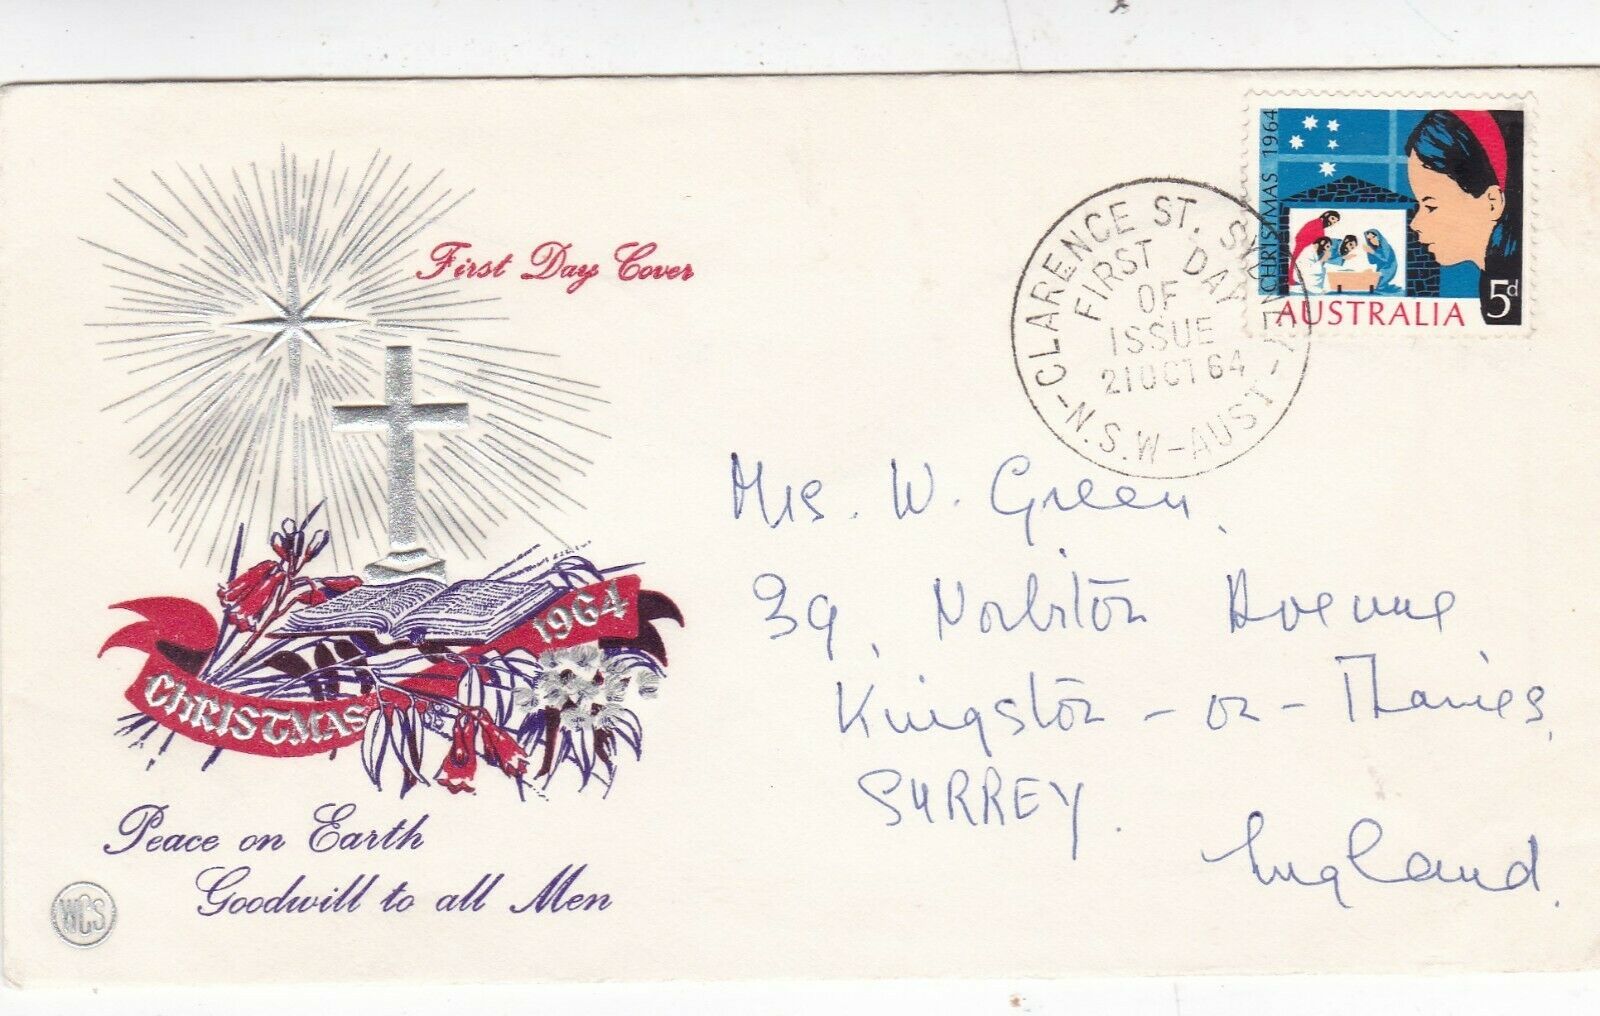 First Day Cover
CHRISTMAS 1964
Peace on Earth
Goodwill to all Men
WCS
CLARENCE ST. SYDNEY
N.S.W-AUST
FIRST DAY
OF
ISSUE
21 OCT 64
CHRISTMAS 1964
5d
AUSTRALIA
Mrs. W. Green.
39, Norbiton Avenue
Kingston-on-Thames,
SURREY.
England.